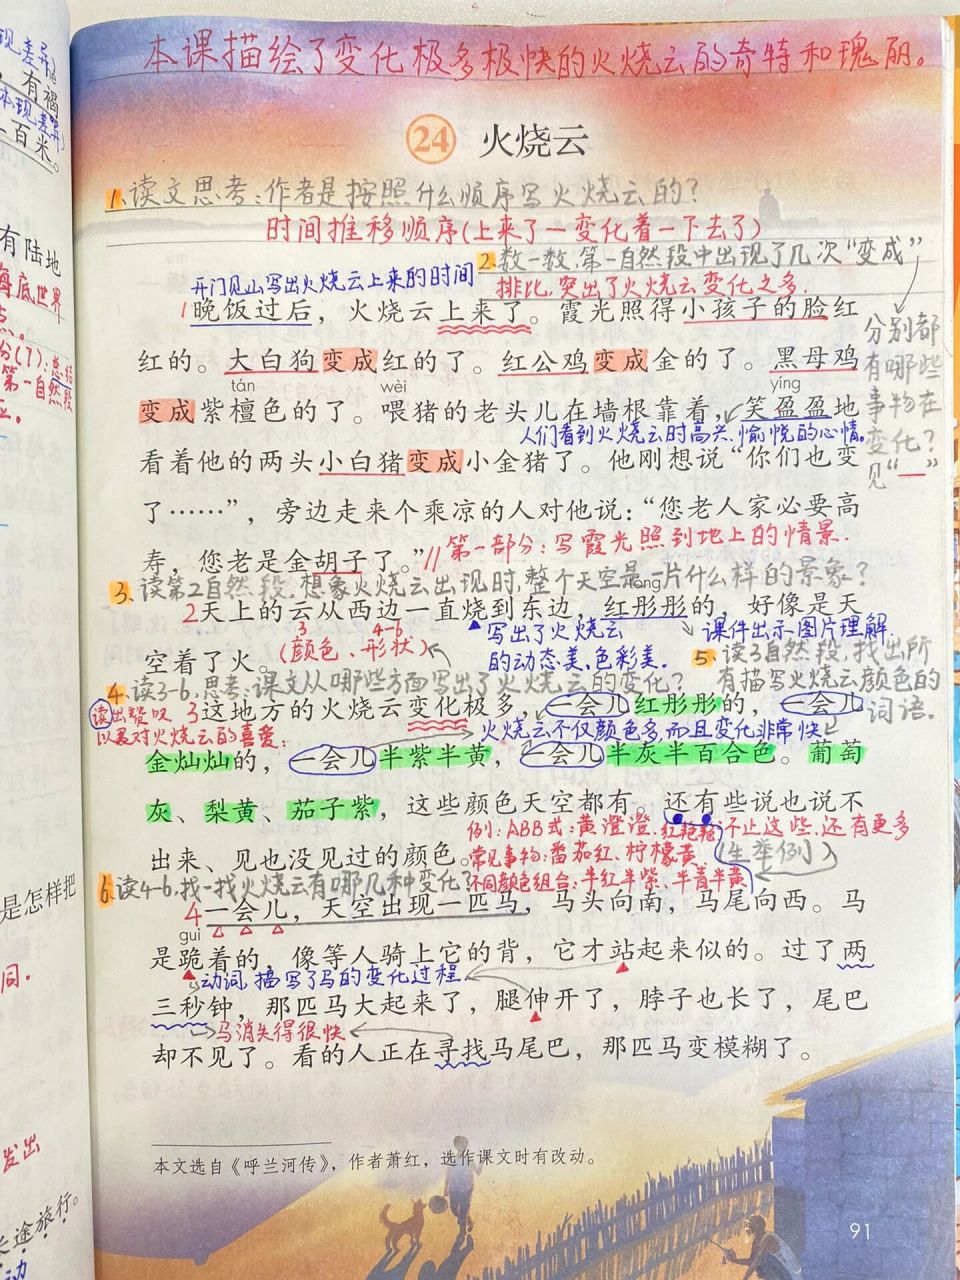 现差异)
有褐
体现差异)
一百米。
有陆地
海底世界
点。
分(7):总结
第一自然段
是怎样把
同。
发出
长途旅行。
动
本课描绘了变化极多极快的火烧云的奇特和瑰丽。
24 火烧云
1.读文思考:作者是按照什么顺序写火烧云的?
时间推移顺序(上来了—变化着—下去了)
2.数一数,第一自然段中出现了几次“变成”
开门见山写出火烧云上来的时间
排比,突出了火烧云变化之多.
1晚饭过后，火烧云上来了。霞光照得小孩子的脸红
分别都
有哪些
事物在
变化?
见“—”
红的。大白狗变成红的了。红公鸡变成金的了。黑母鸡
tán wèi yíng
变成紫檀色的了。喂猪的老头儿在墙根靠着，笑盈盈地
人们看到火烧云时高兴、愉悦的心情。
看着他的两头小白猪变成小金猪了。他刚想说“你们也变
了……”，旁边走来个乘凉的人对他说：“您老人家必要高
寿，您老是金胡子了。”//第一部分:写霞光照到地上的情景.
3.读第2自然段,想象火烧云出现时,整个天空是一片什么样的景象?
tóng
2天上的云从西边一直烧到东边，红彤彤的，好像是天
写出了火烧云
的动态美、色彩美.
课件出示图片理解
空着了火。
3 4-6
(颜色、形状)
5.读3自然段,找出所
有描写火烧云颜色的
词语.
4.读3-6,思考:课文从哪些方面写出了火烧云的变化?
读出赞叹
以及对火烧云的喜爱:
3这地方的火烧云变化极多，一会儿红彤彤的，一会儿
火烧云不仅颜色多,而且变化非常快
金灿灿的，一会儿半紫半黄，一会儿半灰半百合色。葡萄
灰、梨黄、茄子紫，这些颜色天空都有。还有些说也说不
例:ABB式:黄澄澄、红艳艳 不止这些,还有更多
出来、见也没见过的颜色。
常见事物:番茄红、柠檬黄 (生举例)
不同颜色组合:半红半紫、半青半黄
6.读4-6,找一找火烧云有哪几种变化?
4一会儿，天空出现一匹马，马头向南，马尾向西。马
guì
是跪着的，像等人骑上它的背，它才站起来似的。过了两
动词,描写了马的变化过程
三秒钟，那匹马大起来了，腿伸开了，脖子也长了，尾巴
马消失得很快
却不见了。看的人正在寻找马尾巴，那匹马变模糊了。
本文选自《呼兰河传》，作者萧红，选作课文时有改动。
91